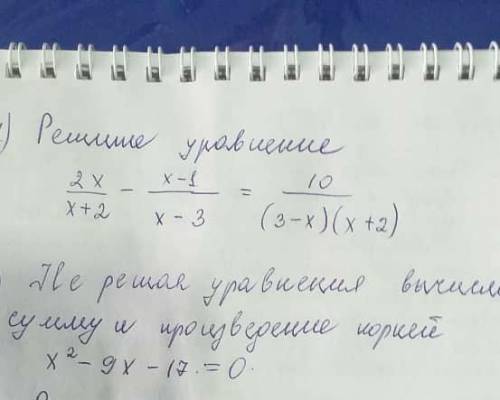 ) Решите уравнение
2x/(x+2) - (x-1)/(x-3) = 10/((3-x)(x+2))
) Не решая уравнения вычисл
сумму и произведение корней
x² - 9x - 17 = 0.